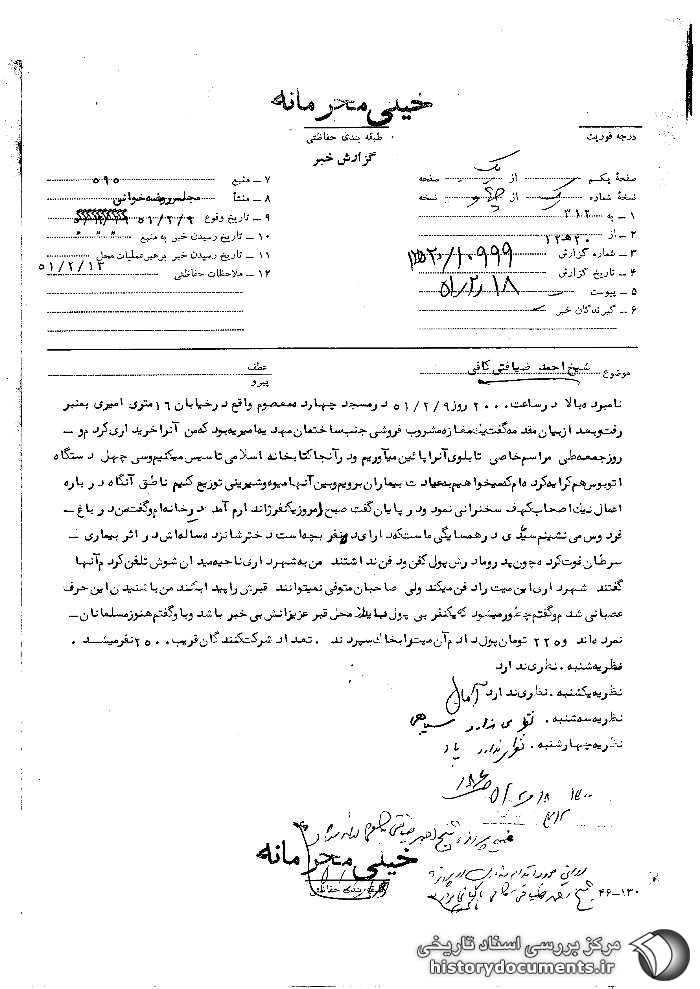 خیلی محرمانه
طبقه بندی حفاظتی
گزارش خبر
درجه فوریت
صفحهٔ یکم از یک صفحه
نسخهٔ شماره از نسخه
۱ – به ۳۱۲
۲ – از ۲۰ ه ۱۲
۳ – شماره گزارش ۱۰۹۹۹/ ۲۰ ه ۱۲
۴ – تاریخ گزارش ۵۱/۲/۱۸
۵ – پیوست
۶ – گیرندگان خبر
۷ – منبع ۵۹۵
۸ – منشأ مجلس روضه خوانی
۹ – تاریخ وقوع ۵۱/۲/۹
۱۰ – تاریخ رسیدن خبر به منبع " " "
۱۱ – تاریخ رسیدن خبر برهبر عملیات محل ۵۱/۲/۱۲
۱۲ – ملاحظات حفاظتی
موضوع شیخ احمد ضیافتی کافی
عطف
پیرو
نامبرده بالا در ساعت ۲۰۰۰ روز ۵۱/۲/۹ در مسجد چهارده معصوم واقع در خیابان ۱۶ متری امیری بمنبر
رفت و بعد از بیان مقدمه گفت یک مغازه مشروب فروشی جنب ساختمان مهدیه امیریه بود که من آنرا خریداری کردم و –
روز جمعه طی مراسم خاصی تابلوی آنرا پائین میآوریم و در آنجا کتابخانه اسلامی تاسیس میکنیم و سی چهل دستگاه
اتوبوس هم کرایه کرده ام که میخواهیم به عیادت بیماران برویم و بین آنها میوه و شیرینی توزیع کنیم ناطق آنگاه در باره
اعمال نیک اصحاب کهف سخنرانی نمود و در پایان گفت صبح امروز یکنفر ژاندارم آمد در خانه ام و گفت من در باغ –
فردوس می نشینم سیّدی در همسایگی ماست که دارای نفر بچه است دختر شانزده ساله اش در اثر بیماری –
سرطان فوت کرده و چون پدر و مادرش پول کفن و دفن نداشتند من به شهرداری ناحیه میدان شوش تلفن کردم آنها
گفتند شهرداری این میت را دفن میکند ولی صاحبان متوفی نمیتوانند قبرش را پیدا بکنند من با شنیدن این حرف
عصبانی شدم و گفتم چطور میشود که یکنفر بی پول محل قبر عزیزانش بی خبر باشد و باو گفتم هنوز مسلمانان –
نمرده اند و ۲۲۵ تومان پول دادم آن میت را بخاک سپردند . تعداد شرکت کنندگان قریب ۲۵۰۰ نفر میشد .
نظریه شنبه . نظری ندارد
نظریه یکشنبه . نظری ندارد آرمان
نظریه سه شنبه . نظری ندارد
نظریه چهارشنبه . نظری ندارد
۳۱۲
خیلی محرمانه
طبقه بندی حفاظتی
۴۶-۱۳۰
مرکز بررسی اسناد تاریخی
historydocuments.ir